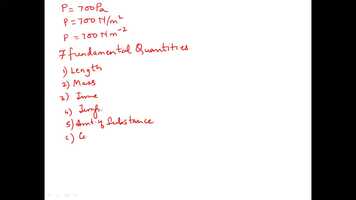 P = 700Pa
P = 700 N/m²
P = 700 N m⁻²
7 fundamental Quantities
1) Length
2) Mass
3) Time
4) Temp.
5) Amt of Substance
6) C